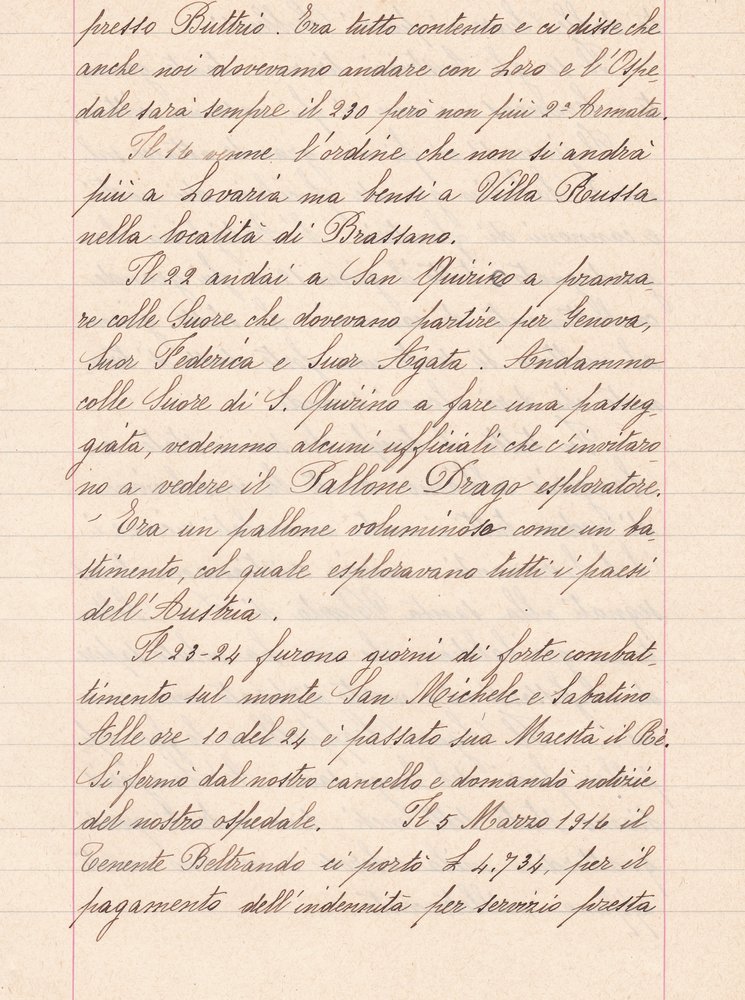 presso Buttrio. Era tutto contento e ci disse che
anche noi dovevamo andare con Loro e l'Ospe-
dale sarà sempre il 230 però non più 2ª Armata.
Il 16 venne l'ordine che non si andrà
più a Lovaria ma bensì a Villa Russa
nella località di Brassano.
Il 22 andai a San Quirino a pranza
re colle Suore che dovevano partire per Genova,
Suor Federica e Suor Agata. Andammo
colle Suore di S. Quirino a fare una passeg-
giata, vedemmo alcuni ufficiali che c'invitaro-
no a vedere il Pallone Drago esploratore.
Era un pallone voluminoso come un ba-
stimento, col quale esploravano tutti i paesi
dell'Austria.
Il 23-24 furono giorni di forte combat-
timento sul monte San Michele e Sabatino
Alle ore 10 del 24 è passato sua Maestà il Rè.
Si fermò dal nostro cancello e domandò notizie
del nostro ospedale. Il 5 Marzo 1916 il
Tenente Beltrando ci portò £ 4.734, per il
pagamento dell'indennità per servizio presta